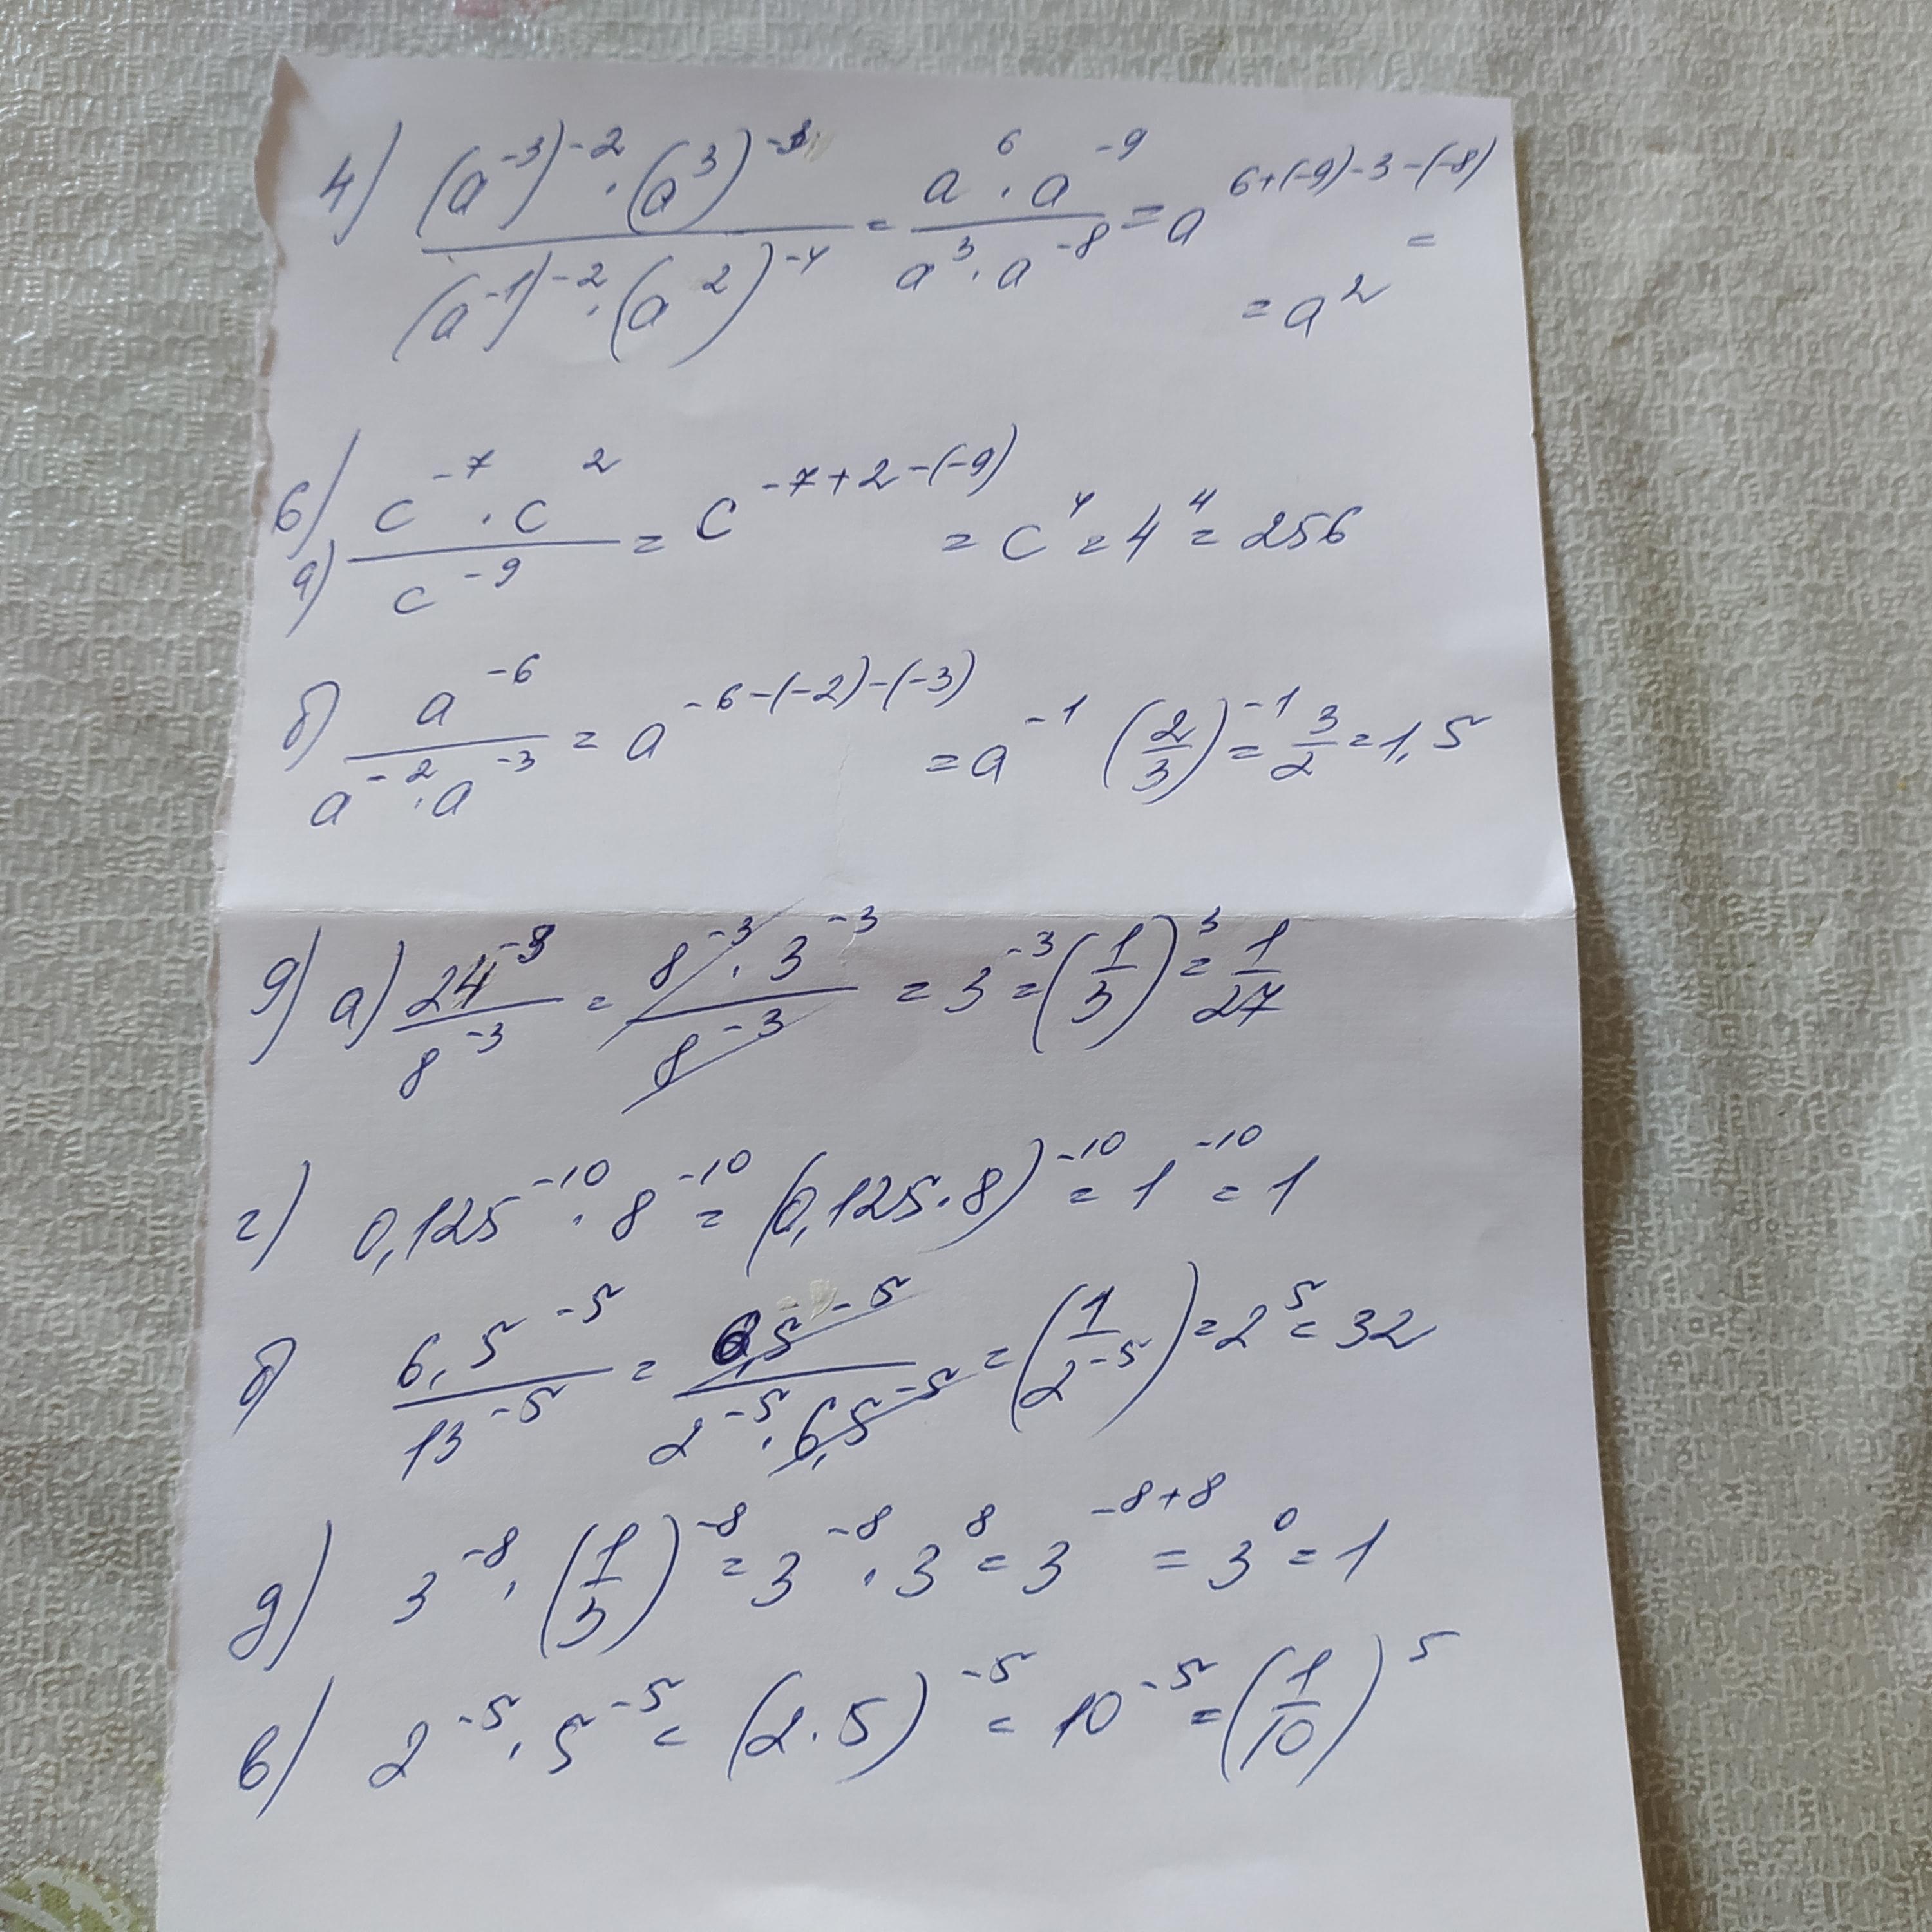 4) ((a^-3)^-2 · (a^3)^-3) / ((a^-1)^-2 · (a^2)^-4) = (a^6 · a^-9) / (a^3 · a^-8) = a^(6+(-9)-3-(-8)) =
= a^2
6)
а) (c^-7 · c^2) / c^-9 = c^(-7+2-(-9)) = c^4 = 4^4 = 256
б) a^-6 / (a^-2 · a^-3) = a^(-6-(-2)-(-3)) = a^-1 (2/3)^-1 = 3/2 = 1,5
9) а) 24^-3 / 8^-3 = (8^-3 · 3^-3) / 8^-3 = 3^-3 = (1/3)^3 = 1/27
г) 0,125^-10 · 8^-10 = (0,125 · 8)^-10 = 1^-10 = 1
б) 6,5^-5 / 13^-5 = 6,5^-5 / (2^-5 · 6,5^-5) = (1/2^-5) = 2^5 = 32
д) 3^-8 · (1/3)^-8 = 3^-8 · 3^8 = 3^(-8+8) = 3^0 = 1
в) 2^-5 · 5^-5 = (2 · 5)^-5 = 10^-5 = (1/10)^5